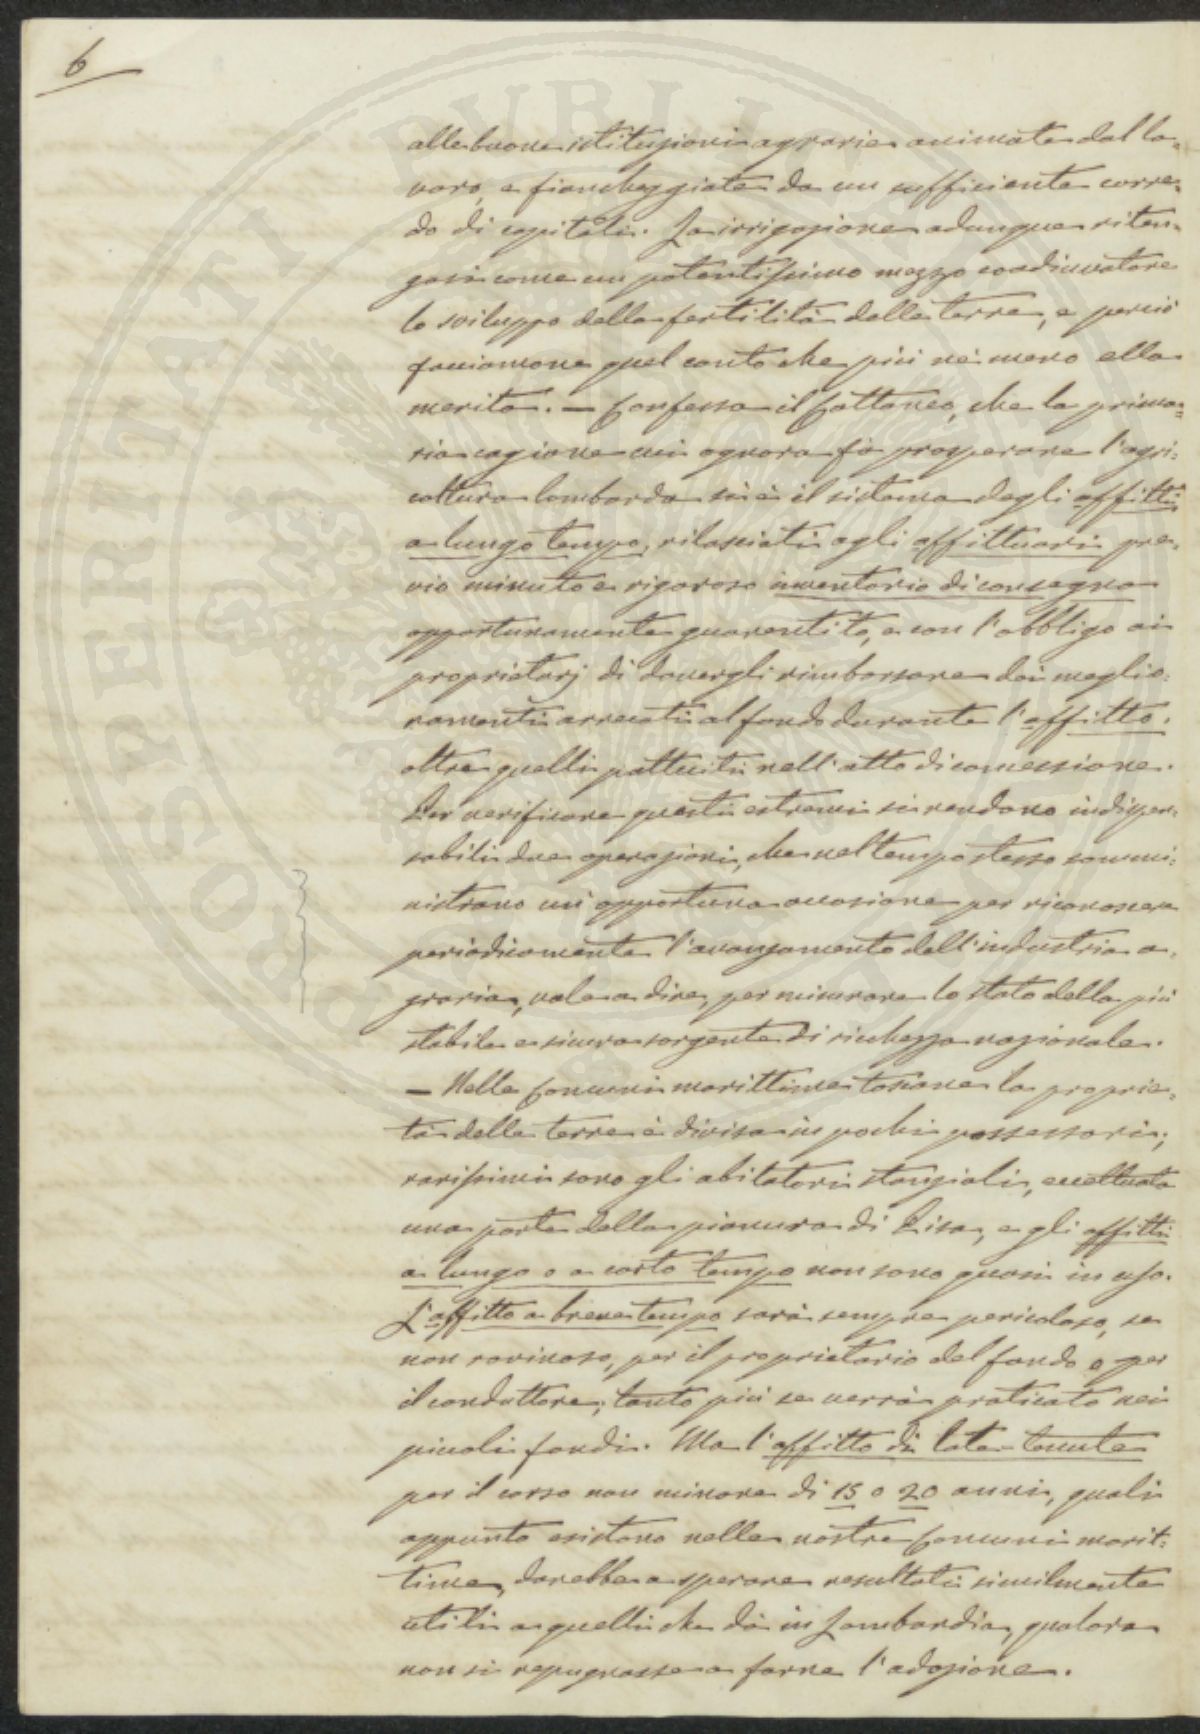 6
alle buone istituzioni agrarie animate dal la-
voro, e fiancheggiate da un sufficiente corre-
do di capitali. La irrigazione adunque riten-
gasi come un potentissimo mezzo coadiuvatore
lo sviluppo della fertilità delle terre, e perciò
facciamone quel conto che più nè meno ella
merita. — Confessa il Cattaneo, che la prima-
ria cagione cui ognora fà prosperare l'agri-
coltura lombarda si è il sistema degli affitti
a lungo tempo, rilasciati agli affittuari pre-
vio minuto e rigoroso inventario di consegna
opportunamente guarentito, e con l'obbligo ai
proprietarj di dovergli rimborsare dai meglio-
ramenti arrecati al fondo durante l'affitto.
oltre quelli pattuiti nell'atto di concessione.
Per verificare questi estremi si rendono indispen-
sabili due operazioni, che nel tempo stesso sommi-
nistrano un'opportuna occasione per riconoscere
periodicamente l'avanzamento dell'industria a-
graria, vale a dire, per misurare lo stato della più
stabile e sicura sorgente di ricchezza nazionale.
— Nelle Comuni marittime toscane la proprie-
tà delle terre è divisa in pochi possessori;
rarissimi sono gli abitatori stanziali, eccettuata
una parte della pianura di Pisa, e gli affitti
a lungo o a corto tempo non sono quasi in uso.
L'affitto a breve tempo sarà sempre pericoloso, se
non rovinoso, per il proprietario del fondo e per
il conduttore; tanto più se verrà praticato nei
piccoli fondi. Ma l'affitto di late-tenute
per il corso non minore di 15 o 20 anni, quali
appunto esistono nelle nostre Comuni marit-
time, darebbe a sperare resultati similmente
utili a quelli che dà in Lombardia, qualora
non si repugnasse a farne l'adozione.